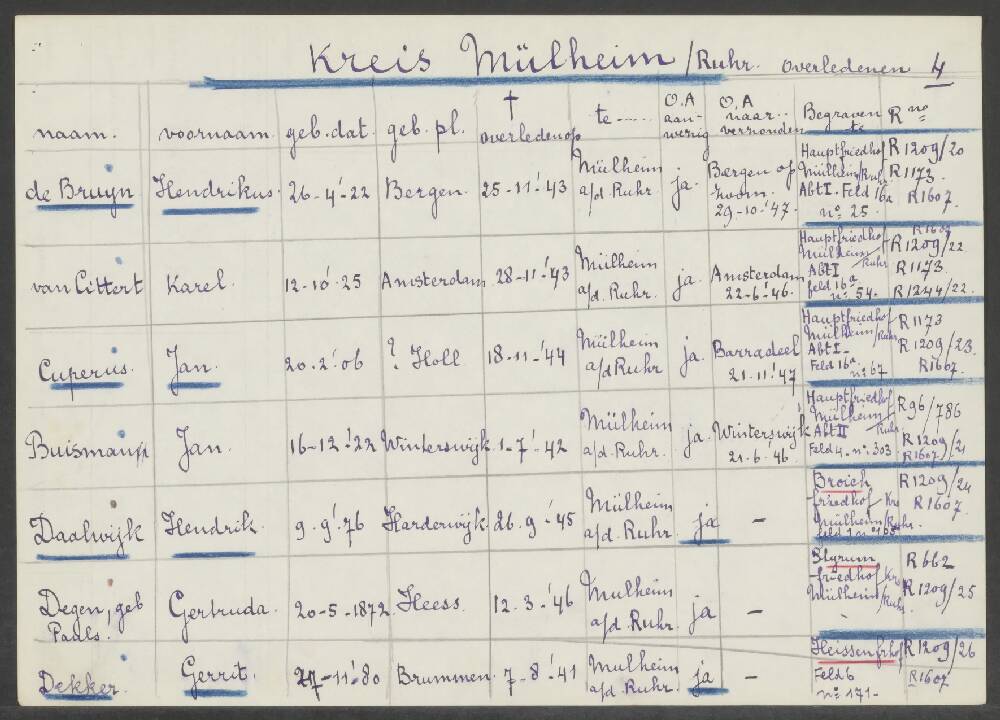 Kreis Mülheim /Ruhr. overledenen 4
naam. voornaam. geb. dat. geb. pl. † overleden op te ----- O.A aan- wezig O.A naar.. verzonden Begraven te R no
de Bruyn Hendrikus. 26-4-'22 Bergen. 25-11-'43 Mülheim a/d Ruhr. ja. Bergen op zoom. 29-10-'47. Hauptfriedhof Mülheim/Ruhr. Abt I. Feld 16a no 25. R1209/20 R1173. R1607.
van Cittert Karel. 12-10-'25 Amsterdam 28-11-'43 Mülheim a/d. Ruhr. ja. Amsterdam 22-6-'46. Hauptfriedhof Mülheim /Ruhr Abt I feld 16a no 54. R1209/22 R1173. R1244/22.
Cuperus. Jan. 20-2-'06 ? Holl. 18-11-'44 Mülheim a/d Ruhr ja. Barradeel 21-11-'47 Hauptfriedhof Mülheim/Ruhr Abt I- Feld 16a. no 67 R1173 R1209/23. R1607.
Buisman Jan. 16-12-'22 Winterswijk 1-7-'42 Mülheim a/d. Ruhr. ja. Winterswijk 21-6-46. Hauptfriedhof Mülheim Ruhr. Abt II Feld 4. no 303 R96/786 R1209/21 R1607
Daalwijk Hendrik. 9-9-'76 Harderwijk 26-9-'45 Mülheim a/d. Ruhr. ja - Broich friedhof Kr Mülheim/Ruhr. feld 1 R1209/24 R1607.
Degen, geb Paals. Gertruda. 20-5-1872 Heess. 12-3-'46 Mulheim a/d. Ruhr. ja - Styrum friedhof Kr Mülheim/Ruhr. R662 R1209/25
Dekker. Gerrit. 27-11-'80 Brummen. 7-8-'41 Mulheim a/d. Ruhr. ja - Heissen frhof Feld 6 no 171- R1209/26 R1607